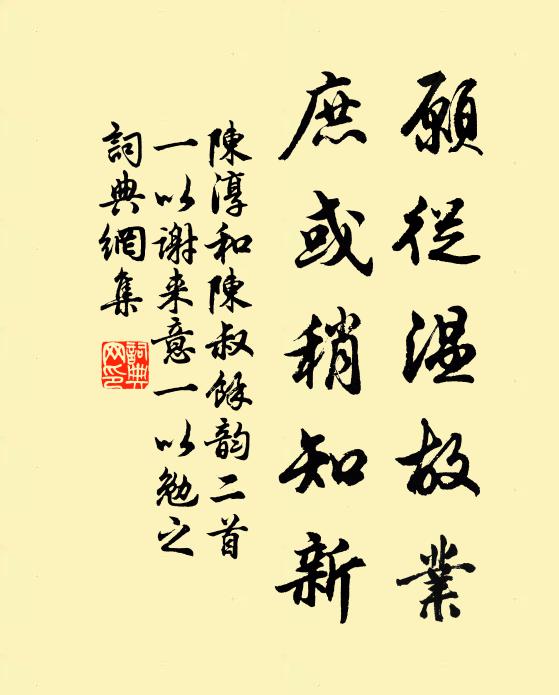 願從温故業
庶或稍知新
陳淳和陳叔餘韵二首
一以謝来意一以勉之
詞典網集
詞典網印